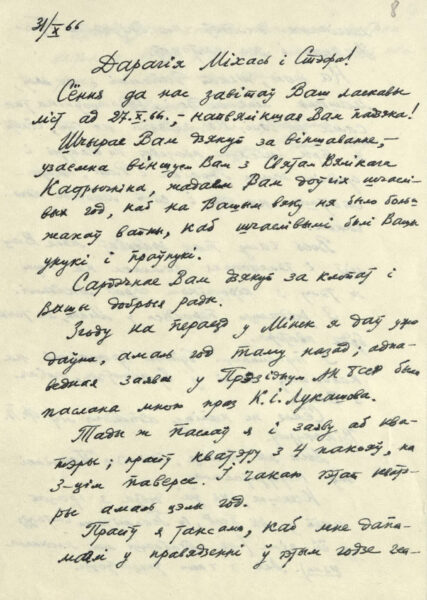 8
31/X 66
Дарагія Міхась і Стэфа!
Сёння да нас завітаў Ваш ласкавы
ліст ад 27.X.66, – найвялікшая Вам падзяка!
Шчырае Вам дзякуй за віншаванне, –
узаемна віншуем Вам з Святам Вялікага
Кастрычніка, жадаем Вам доўгіх шчаслі-
вых год, каб на Вашым вяку ня было боль
жахаў вайны, каб шчаслівымі былі Вашы
унукі і праўнукі.
Сардэчнае Вам дзякуй за клопат і
Вашы добрыя рады.
Згоду на пераезд у Мінск я даў ужо
даўно, амаль год таму назад; адпа-
ведная заява у Прэзідыум АН БССР была
паслана мною праз К.І. Лукашова.
Тады ж паслаў я і заяву аб ква-
тэры; прасіў кватэру з 4 пакояў, на
3-цім паверсе. І чакаю гэтай кватэ-
ры амаль цэлы год.
Прасіў я таксама, каб мне дапа-
маглі у правядзенні ў гэтым годзе